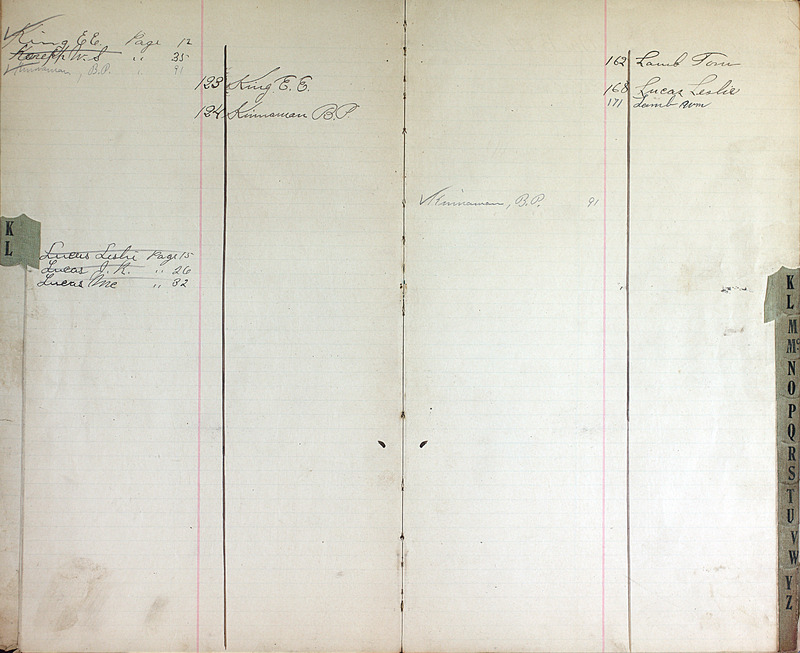 King E.E. Page 12
W.S. " 35
Kinnaman, B.P. " 91
123 King E. E.
124 Kinnaman B.P.
K
L
Lucas Leslie Page 15
Lucas J. R. " 26
Lucas Mc " 32
162 Lamb Tom
168 Lucas Leslie
171 Lamb Wm
Kinnaman, B.P. 91
K
L
M
Mc
N
O
P
Q
R
S
T
U
V
W
Y
Z